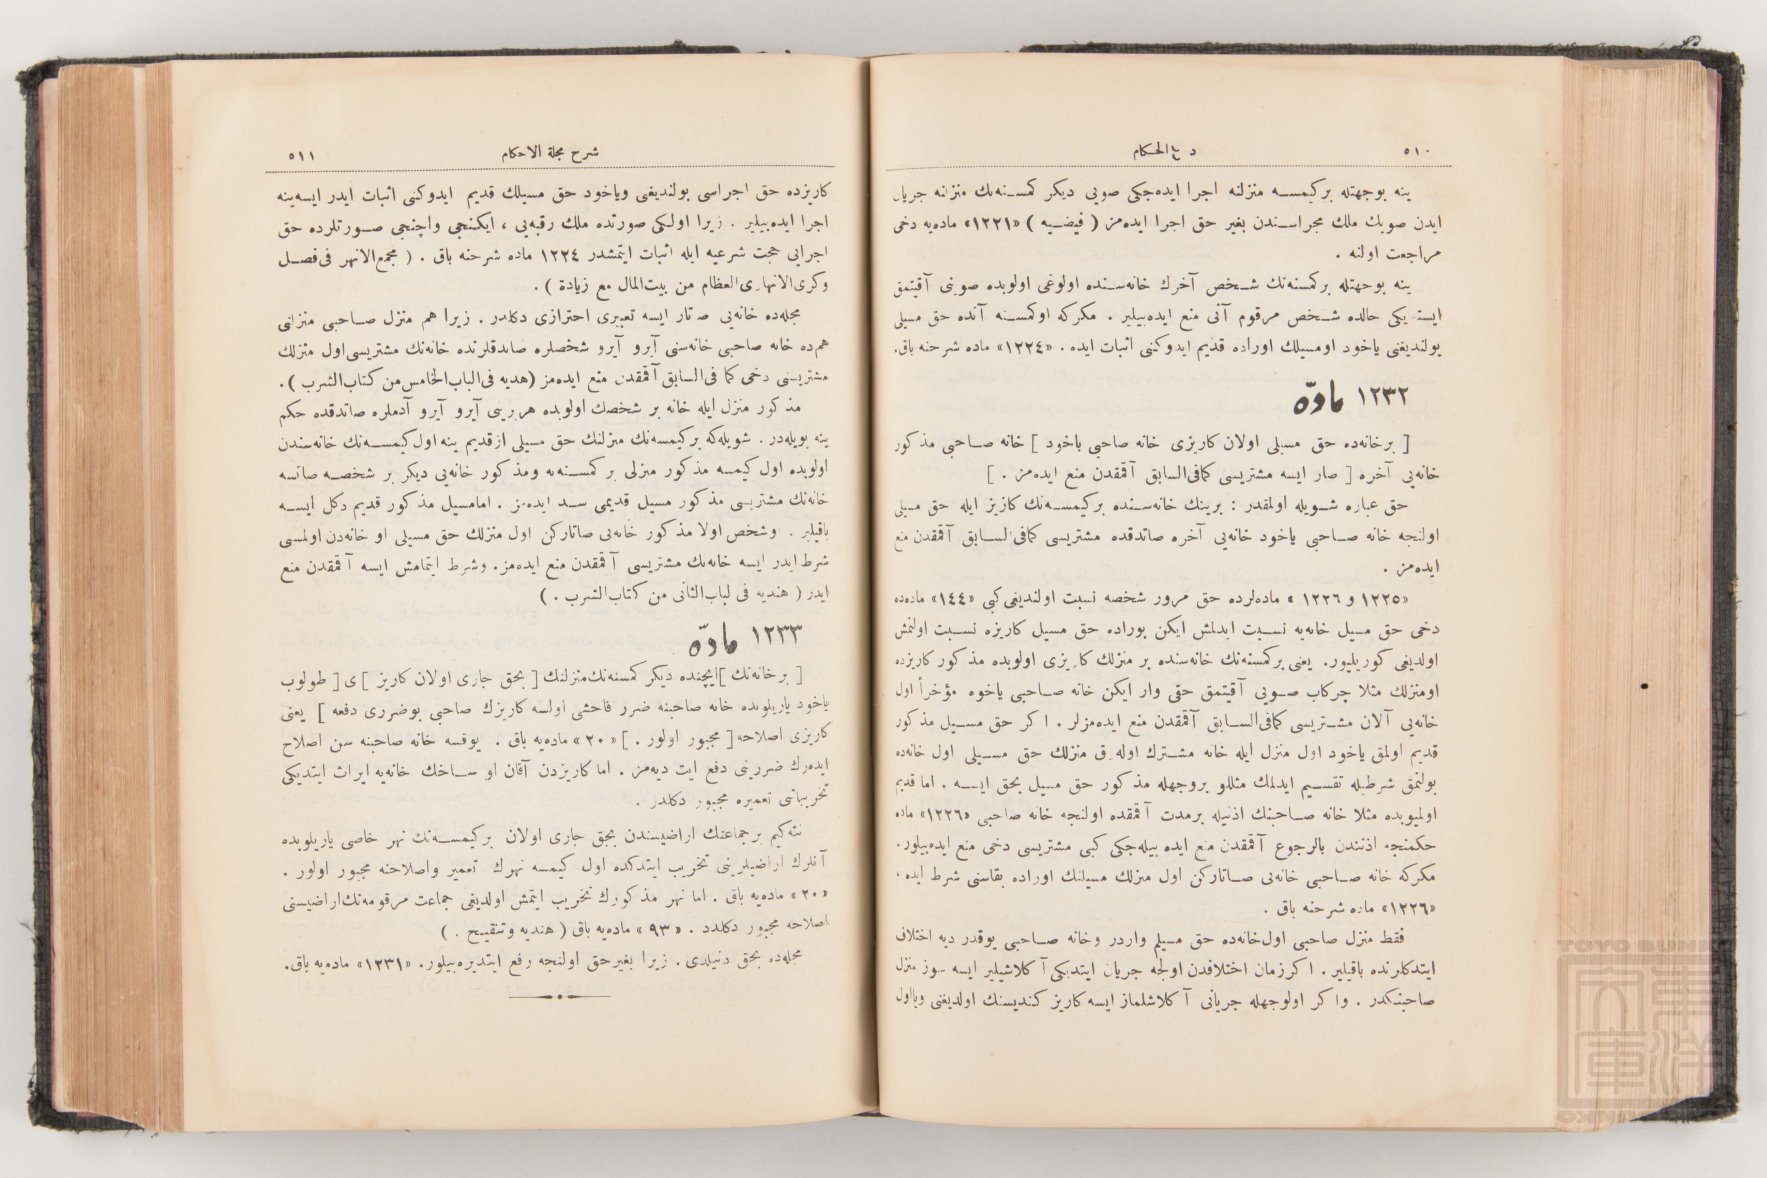 ٥١٠
درر الحكام
ينه بوجهتله بركيمسه منزلنه اجرا ايده‌جكى صويى ديكر كمسنه‌نك منزلنه جريان
ايدن صوينك ملك مجراسندن بغير حق اجرا ايده‌مز ( فيضيه ) «١٢٢١» ماده‌يه دخى
مراجعت اولنه .
ينه بوجهتله بركمسنه‌نك شخص آخرك خانه‌سنده اولوغى اولوبده صوينى آقيتمق
ايستديكى حالده شخص مرقوم آنى منع ايده‌بيلير . مكركه اوكمسنه آنده حق مسيلى
بولنديغنى ياخود اومسيلك اوراده قديم ايدوكنى اثبات ايده . «١٢٢٤» ماده شرحنه باق.
١٢٣٢ مادّه
[ برخانه‌ده حق مسيلى اولان كاريزى خانه صاحبى ياخود ] خانه صاحبى مذكور
خانه‌يى آخره [ صار ايسه مشتريسى كمافى‌السابق آقمقدن منع ايده‌مز . ]
حق عباره شويله اولمقدر : برينك خانه‌سنده بركيمسه‌نك كاريز ايله حق مسيلى
اولنجه خانه صاحبى ياخود خانه‌يى آخره صاتدقده مشتريسى كمافى‌السابق آقمقدن منع
ايده‌مز .
«١٢٢٥ و ١٢٢٦ » ماده‌لرده حق مرور شخصه نسبت اولنديغى كبى «١٤٤» ماده‌ده
دخى حق مسيل خانه‌يه نسبت ايدلمش ايكن بوراده حق مسيل كاريزه نسبت اولنمش
اولديغى كوريليور. يعنى بركمسنه‌نك خانه‌سنده بر منزلك كاريزى اولوبده مذكور كاريزده
اومنزلك مثلا چركاب صويى آقيتمق حقى وار ايكن خانه صاحبى ياخود مؤخراً اول
خانه‌يى آلان مشتريسى كمافى‌السابق آقمقدن منع ايده‌مزلر . اكر حق مسيل مذكور
قديم اولمق ياخود اول منزل ايله خانه مشترك اوله‌رق منزلك حق مسيلى اول خانه‌ده
بولنمق شرطيله تقسيم ايدلمك مثللو بروجهله مذكور حق مسيل بحق ايسه . اما قديم
اولميوبده مثلا خانه صاحبنك اذنيله برمدت آقمقده اولنجه خانه صاحبى «١٢٢٦» ماده
حكمنجه اذنندن بالرجوع آقمقدن منع ايده بيله‌جكى كبى مشتريسى دخى منع ايده‌بيلور.
مكركه خانه صاحبى خانه‌يى صاتاركن اول منزلك مسيلنك اوراده بقاسنى شرط ايده ،
«١٢٢٦» ماده شرحنه باق .
فقط منزل صاحبى اول‌خانه‌ده حق مسيلم واردر وخانه صاحبى يوقدر ديه اختلاف
ايتدكلرنده باقيلير . اكرزمان اختلافدن اولجه جريان ايتديكى آكلاشيلير ايسه سوز منزل
صاحبنكدر . واكر اولوجهله جريانى آكلاشلماز ايسه كاريز كنديسنك اولديغنى وياول
شرح مجلة الاحكام
٥١١
كاريزده حق اجراسى بولنديغنى وياخود حق مسيلك قديم ايدوكنى اثبات ايدر ايسه‌ينه
اجرا ايده‌بيلير . زيرا اولكى صورتده ملك رقبه‌يى ، ايكنجى واچنجى صورتلرده حق
اجرايى حجت شرعيه ايله اثبات ايتمشدر ١٢٢٤ ماده شرحنه باق . ( مجمع‌الانهر فى‌فصل
وكرى‌الانهارى‌العظام من بيت‌المال مع زيادة ) .
مجله‌ده خانه‌يى صاتار ايسه تعبيرى احترازى دكلدر . زيرا هم منزل صاحبى منزلنى
هم‌ده خانه صاحبى خانه‌سنى آيرو آيرو شخصلره صاتدقلرنده خانه‌نك مشتريسى‌اول منزلك
مشتريسنى دخى كما فى‌السابق آقمقدن منع ايده‌مز (هديه فى‌الباب‌الخامس‌من كتاب‌الشرب ).
مذكور منزل ايله خانه بر شخصك اولوبده هربرينى آيرو آيرو آدملره صاتدقده حكم
ينه بويله‌در . شويله‌كه بركيمسه‌نك منزلنك حق مسيلى ازقديم ينه اول‌كيمسه‌نك خانه‌سندن
اولوبده اول كيمسه مذكور منزلى بر كمسنه‌يه ومذكور خانه‌يى ديكر بر شخصه صاتسه
خانه‌نك مشتريسى مذكور مسيل قديمى سد ايده‌مز . امامسيل مذكور قديم دكل ايسه
باقيلير . اوشخص اولا مذكور خانه‌يى صاتاركن اول منزلك حق مسيلى او خانه‌دن اولمسى
شرط ايدر ايسه خانه‌نك مشتريسى آقمقدن منع ايده‌مز. وشرط ايتمامش ايسه آقمقدن منع
ايدر ( هنديه فى لباب‌الثانى من كتاب‌الشرب . )
١٢٣٣ مادّه
[ برخانه‌نك ]ايچنده ديكر كمسنه‌نك‌منزلنك [ بحق جارى اولان كاريز ] ى [ طولوب
ياخود ياريلوبده خانه صاحبنه ضرر فاحشى اولسه كاريزك صاحبى بوضررى دفعه ] يعنى
كاريزى اصلاحه [ مجبور اولور . ] « ٢٠ » ماده‌يه باق . يوقسه خانه صاحبنه سن اصلاح
ايده‌رك ضررينى دفع ايت ديه‌مز . اما كاريزدن آقان او ساخك خانه‌يه ايراث ايتديكى
تخريباتى تعميره مجبور دكلدر .
نته‌كيم برجماعتك اراضيسندن بحق جارى اولان بركيمسه‌نك نهر خاصى ياريلوبده
آنلرك اراضيلرينى تخريب ايتدكده اول كيمسه نهرك تعمير واصلاحنه مجبور اولور .
«٢٠» ماده‌يه باق . اما نهر مذكورك تخريب ايتمش اولديغى جماعت مرقومه‌نك‌اراضيسنى
اصلاحه مجبور دكلدر . « ٩٣ » ماده‌يه باق ( هنديه وتنقيح . )
مجله‌ده بحق دنيلدى . زيرا بغيرحق اولنجه رفع ايتديره‌بيلور. «١٢٣١» ماده‌يه باق.
TOYO BUNKO